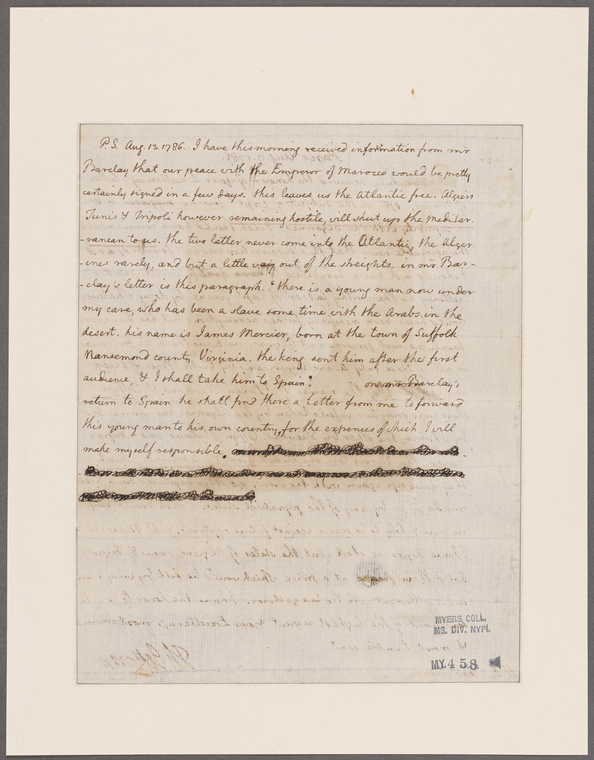 P.S. Aug. 13. 1786. I have this morning received information from mr
Barclay that our peace with the Emperor of Marocco would be pretty
certainly signed in a few days. this leaves us the Atlantic free. Algiers
Tunis & Tripoli however remaining hostile, will shut up the Mediter-
-ranean to us. the two latter never come into the Atlantic, the Alger-
-ines rarely, and but a little way out of the streights. in mr Bar-
-clay's letter is this paragraph. "there is a young man now under
my care, who has been a slave some time with the Arabs in the
desert. his name is James Mercier, born at the town of Suffolk
Nansemond county, Virginia. the king sent him after the first
audience, & I shall take him to Spain". on mr Barclay's
return to Spain he shall find there a letter from me to forward
this young man to his own country, for the expences of which I will
make myself responsible,
MYERS COLL.
MS. DIV. NYPL
MY. 458